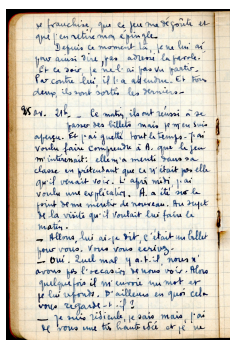 se franchise, que ce jeu me dégoûte et
que j'en retire mon épingle.
Depuis ce moment là, je ne lui ai
pour ainsi dire pas adressé la parole.
Et ce soir, je ne l'ai pas vu partir.
Par contre lui l'a attendue. Et tous
deux, ils sont sortis les derniers.
25 av. 21h _ Ce matin, ils ont réussi à se
passer des billets mais je m'en suis
aperçu. Et j'ai guetté tout le temps. J'ai
voulu faire comprendre à A. que le jeu
m'intéressait : elle m'a menti dans sa
classe en prétendant que ce n'était pas elle
qu'il venait voir. L'après midi j'ai
voulu une explication. A. a été sur le
point de me mentir de nouveau. Au sujet
de la visite qu'il voulait lui faire le
matin.
_ Allons, lui ai-je dit, c'était un billet
pour vous. Vous vous écrivez.
_ Oui. Quel mal y a-t-il ? nous n'
avons pas l'occasion de nous voir. Alors
quelquefois il m'envoie un mot et
je lui réponds. D'ailleurs en quoi cela
vous regarde-t-il ?
_ Je suis ridicule, je sais mais, j'ai
de vous une très haute idée et je ne